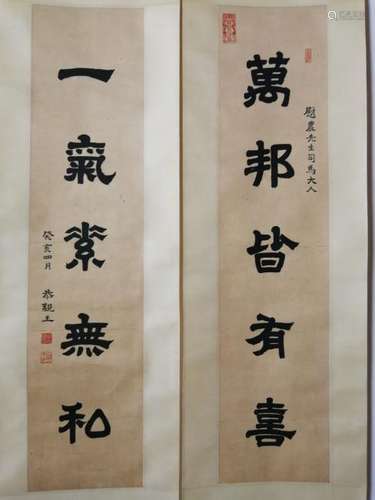 慰農先生司馬大人
萬邦皆有喜
一氣素無和
癸亥四月 恭親王